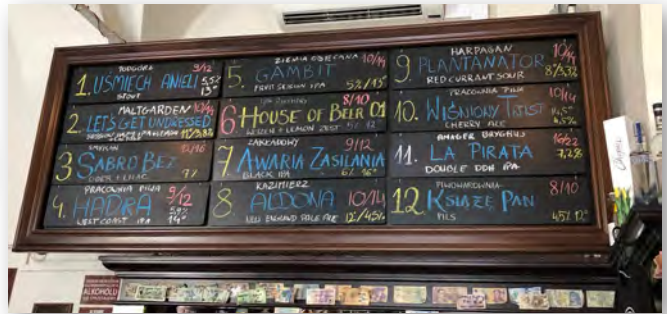 PODGÓRZ 9/12
1. UŚMIECH ANIELI 5,5%
STOUT 13°
MALTGARDEN 10/14
2. LET'S GET UNDRESSED
3 SABRO BEZ 12/16
PRACOWNIA PIWA 9/12
4. HADRA 5,9%
WEST COAST IPA 14°
ZIEMIA OBIECANA 10/14
5. GAMBIT
FRUIT SESSION IPA 5%/13°
8/10
6. HOUSE OF BEER 01
LEMON ZEST
ZAKŁADOWY 9/12
7 AWARIA ZASILANIA
BLACK IPA 6% 16°
KAZIMIERZ
8 ALDONA 10/14
NEW ENGLAND PALE ALE 12°/4,5%
HARPAGAN 10/14
9 PLANTANATOR
RED CURRANT SOUR
PRACOWNIA PIWA 10/14
10. WIŚNIOWY TWIST
CHERRY ALE 4,5%
16/22
11. LA PIRATA 7,2%
DOUBLE DDH IPA
PIWOWAROWNIA 8/10
12. KSIĄŻĘ PAN
PILS 4,5% 12°
ALKOHOLU